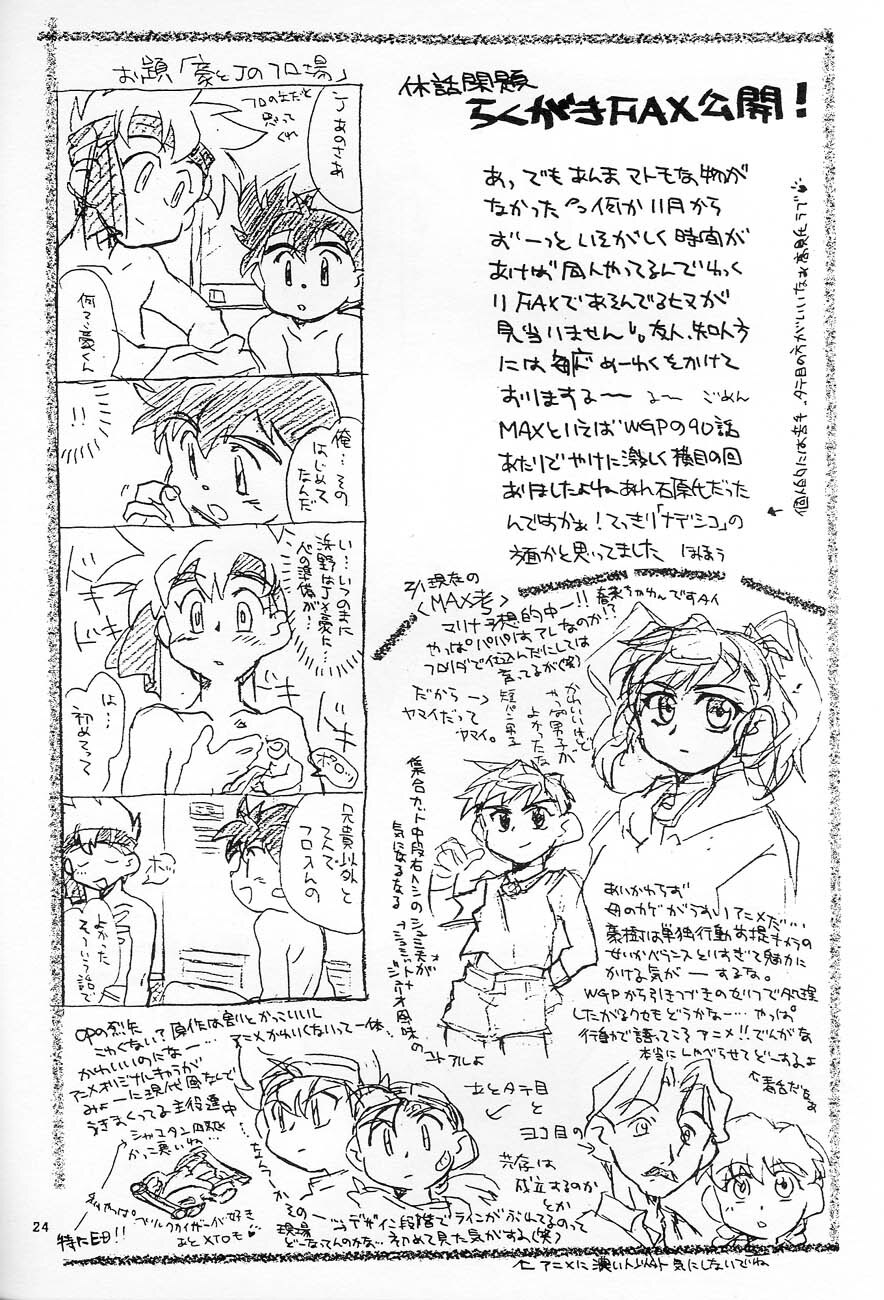 休話閑題
らくがきFAX公開!
あっでもあんまマトモな物が
なかった 何か11月から
おーっといそがしく時間が
あけば同人やってるんでゆっく
りFAXであそんでるヒマが
見当りません。友人、知人方
には毎度めーわくをかけて
おりまするー るー ごめん
MAXといえばWGPの90話
あたりでやけに激しく横目の回
ありましたよねあれ石原氏だった
んですかぁ!てっきり「ナデシコ」の
方面かと思ってました ほほう
お題「豪とJのフロ場」
フロの中だと
思って
くれ
Jあのさあ
何?豪くん
!!
俺…その
はじめて
なんだ
い…いつのまに
浜野はJ×豪に…
への準備が…
ドキ
ドキ
ドキ
ドキ
は…
初めてって
兄貴以外と
二人で
フロ入んの
ホッ
よかった
そういう話で
2/1現在の
〈MAX考〉
マリナ予想的中ー!!
やっぱパパはアレなのか!?
フロリダで仕込んだにしては
育ってるが(笑)
だから→
ヤマイだって
ヤマイ。
短パン男子
かわいいけど
やっぱ男子が
よかったな
集合カット中段右ハシの
気になるなる
あいかわらず
母のカゲがうすいアニメだ…
豪樹は単独行動前提キャラの
せいかバランスとりすぎて魅力に
かける気がーするな。
WGPから引きつづきのセリフで処理
したがるクセもどうかなー…やっぱ
行動で語ってこそアニメ!!でんがな
本当にしゃべらせてどーするよ
OPの烈矢
こわくない?原作は割とかっこいいし
かわいいのになー…
アニメかわいくないって一体…
アニメオリジナルキャラが
みょーに現代風なんで
うきまくってる主役達中
かっこ悪いね…
特にED!!
あとタテ目
と
ヨコ目の
共存は
成立するのか
とか
その一
デザイン段階でラインがぶれてるのって
現場
どーなってんのかな…初めて見た気がする(笑)
←アニメに濃い人以外気にしないでね
24